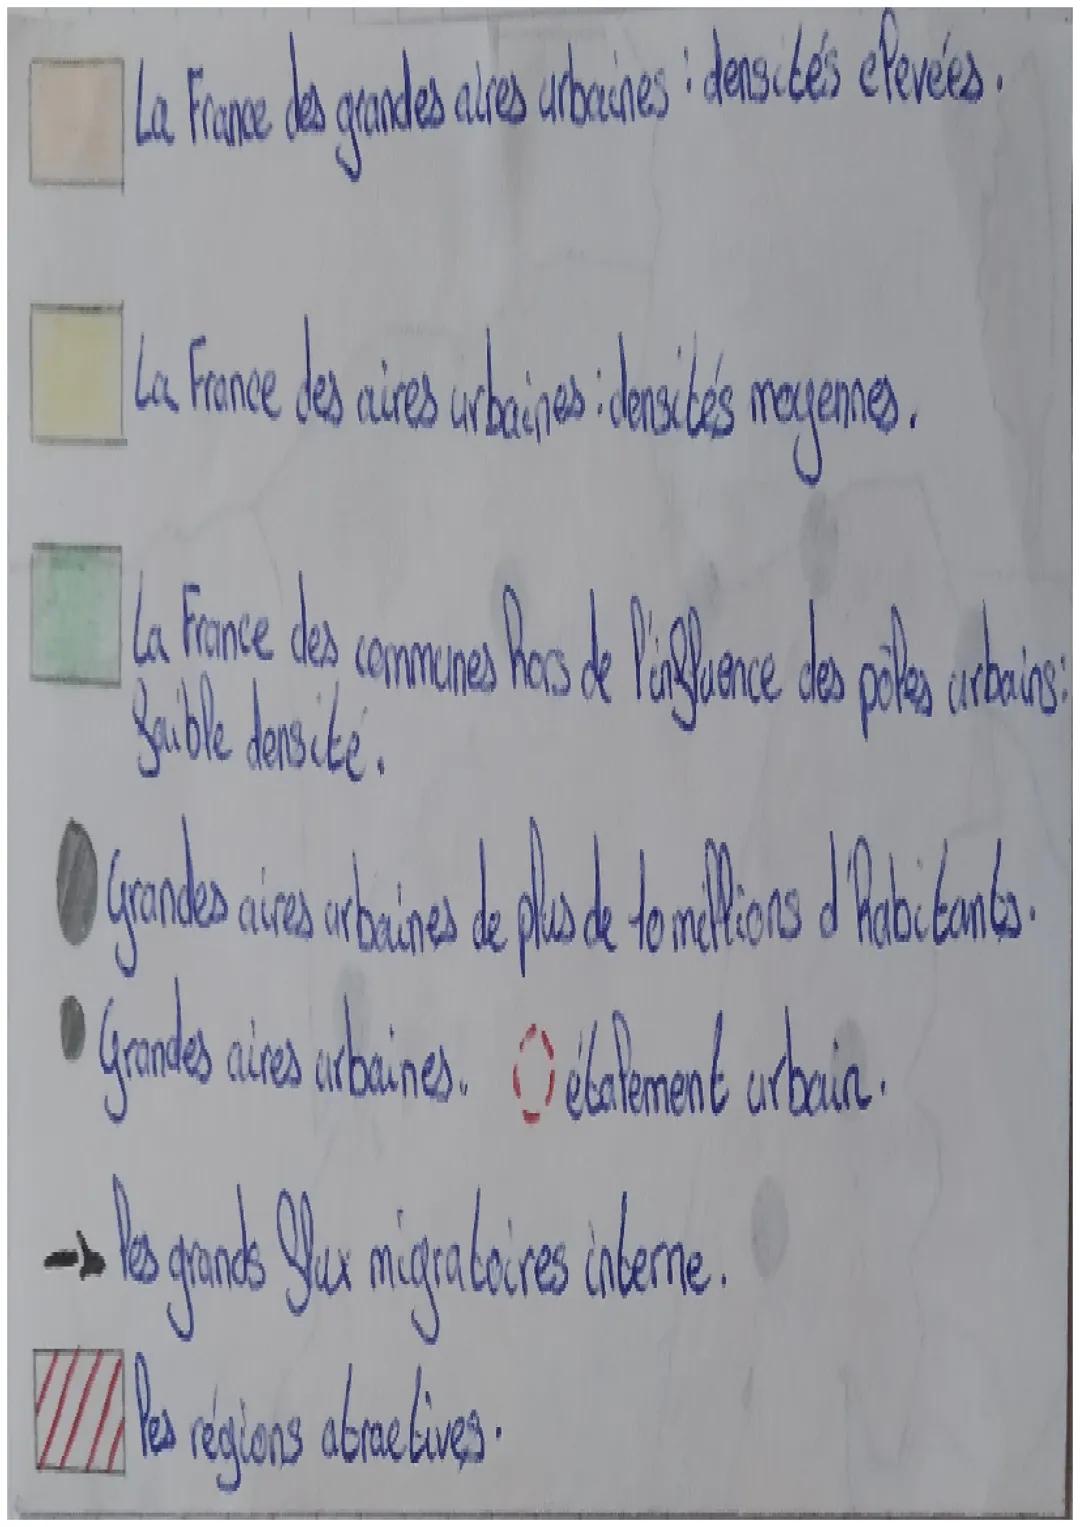 La France des grandes aires urbaines : densités élevées.
La France des aires urbaines : densités moyennes.
La France des communes hors de l'influence des pôles urbains :
faible densité.
Grandes aires urbaines de plus de 10 millions d'habitants.
Grandes aires urbaines. étalement urbain.
les grands flux migratoires interne.
les régions atractives.